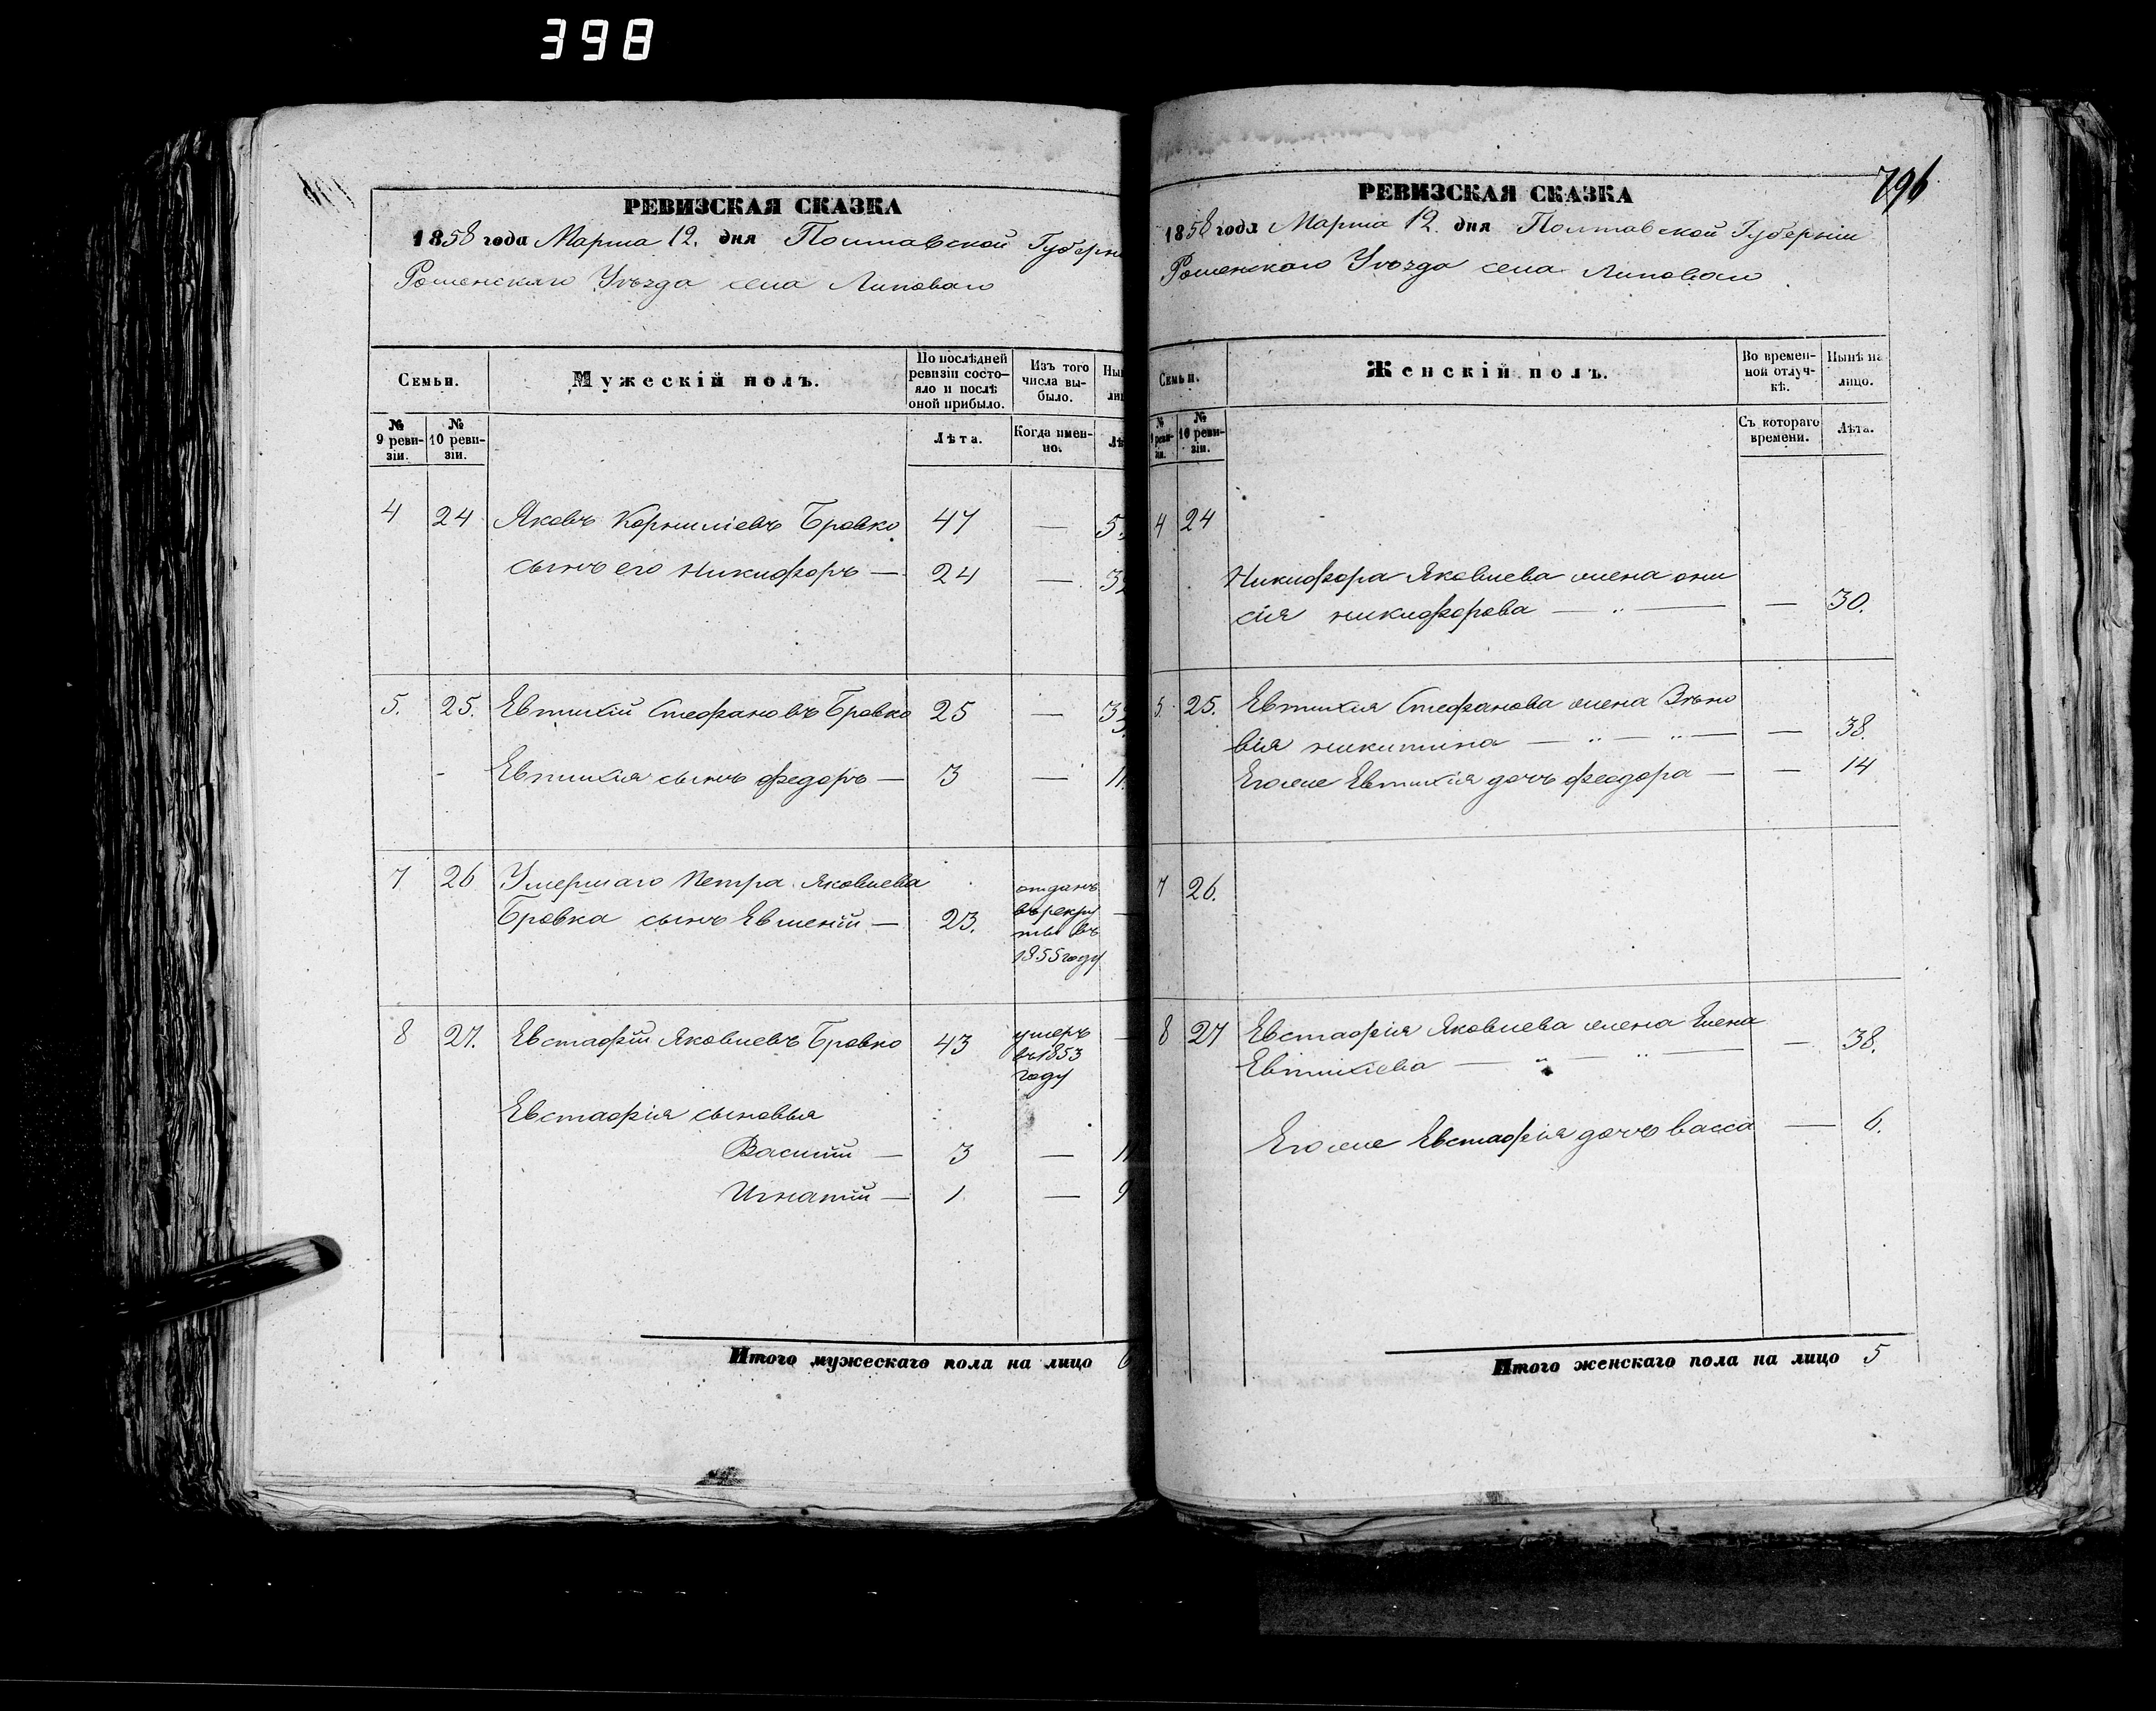 398
РЕВИЗСКАЯ СКАЗКА
1858 года Марта 12. дня Полтавской Губерн
Роменскаго Уѣзда села Липоваго
Семьи.
Мужескій полъ.
По послѣдней ревизіи состо-
яло и послѣ
оной прибыло.
Изъ того
числа вы-
было.
№
9 реви-
зіи.
№
10 реви-
зіи.
Лѣта.
Когда имен-
но.
4 24 Яковъ Корниліевъ Бровко 47 —
сынъ его Никифоръ — 24 —
5. 25. Евтихій Стефановъ Бровко 25 —
Евтихія сынъ Федоръ — 3 — 11.
7 26 Умершаго Петра Яковлева
Бровка сынъ Евменій — 23.
отданъ
въ рекру
ты въ
1855 году
—
8 27. Евстафій Яковлевъ Бровко 43
умеръ
въ 1853
году
—
Евстафія сыновья
Василій — 3 — 11
Игнатій — 1 — 9
Итого мужескаго пола на лицо 6
796
РЕВИЗСКАЯ СКАЗКА
1858 года Марта 12. дня Полтавской Губерніи
Роменскаго Уѣзда села Липоваго
Семьи.
Женскій полъ.
Во времен-
ной отлуч-
кѣ.
Нынѣ на
лицо.
№
9 реви-
зіи.
№
10 реви-
зіи.
Съ котораго
времени.
Лѣта.
4 24
Никифора Яковлева жена Они
сія Никифорова — " — — 30.
5. 25. Евтихія Стефанова жена Зѣно
вія Никитина — " — " — — 38.
Его же Евтихія дочь Феодора — — 14
7 26.
8 27 Евстафія Яковлева жена Елена
Евтихіева — " — " — — 38.
Его же Евстафія дочь Васса — 6.
Итого женскаго пола на лицо 5